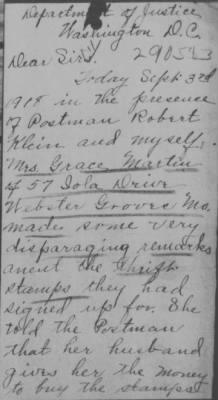 Department of Justice
Washington D.C.
290523
Dear Sirs!
Today Sept 3rd
1918 in the presence
of Postman Robert
Klein and myself,
Mrs. Grace Martin
of 57 Iola Drive
Webster Groove Mo.
made some very
disparaging remarks
anent the thrift
stamps they had
signed up for. She
told the Postman
that her husband
gives her the money
to buy the stamps